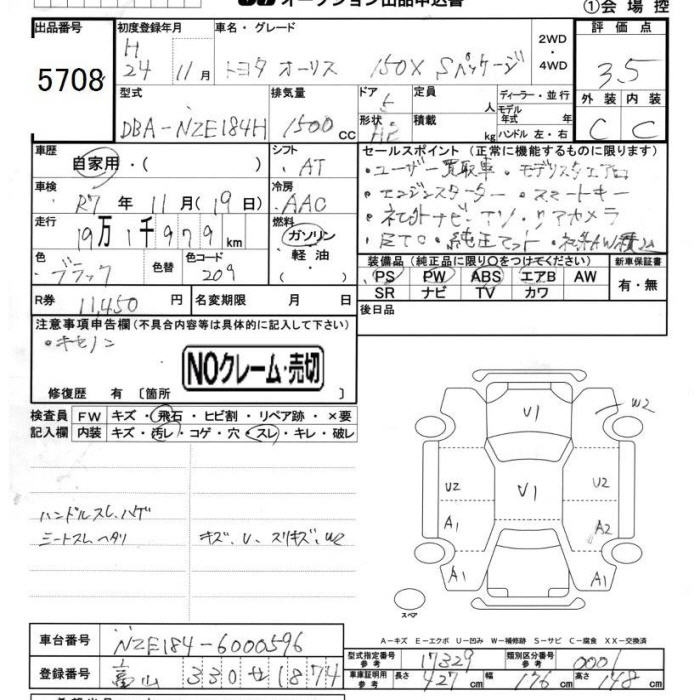 オークション出品申込書
①会場控
出品番号
5708
初度登録年月
H
24 11月
車名・グレード
トヨタ オーリス 150X Sパッケージ
2WD
・
4WD
評価点
3.5
外装 内装
C C
型式
DBA-NZE184H
排気量
1500 cc
ドア
5
形状
定員
人
積載
kg
ディーラー・並行
モデル
年式 年
ハンドル 左・右
車歴
自家用・( )
シフト
AT
車検
R7年 11月(19日)
冷房
AAC
走行
19万1千979km
燃料
ガソリン
・軽油・
( )
色
ブラック
色替
色コード
209
R券 11,450 円
名変期限 月 日
セールスポイント(正常に機能するものに限ります)
・ユーザー買取車・モデリスタエアロ
・エンジンスターター・スマートキー
・社外ナビ・TV・リアカメラ
・ETC・純正マット・社外AW積込
装備品(純正品に限り○をつけてください)
PS PW ABS エアB AW
SR ナビ TV カワ
新車保証書
有・無
後日品
注意事項申告欄(不具合内容等は具体的に記入して下さい)
・キセノン
NOクレーム・売切
修復歴 有〔箇所 〕
検査員記入欄
FW キズ・飛石・ヒビ割・リペア跡・×要
内装 キズ・汚レ・コゲ・穴・スレ・キレ・破レ
ハンドルスレ、ハゲ
シートスレ、ヘタリ
キズ、U、スリキズ、W2
U1
W2
U2
V1
U2
A1
A2
A1
A1
スペア
A-キズ E-エクボ U-凹み W-補修跡 S-サビ C-腐食 XX-交換済
車台番号 NZE184-6000596
登録番号 富山 330 せ 1874
型式指定番号
参考
17329
類別区分番号
参考
0001
車庫証明用
参考
長さ 427cm 幅 176cm 高さ 148cm